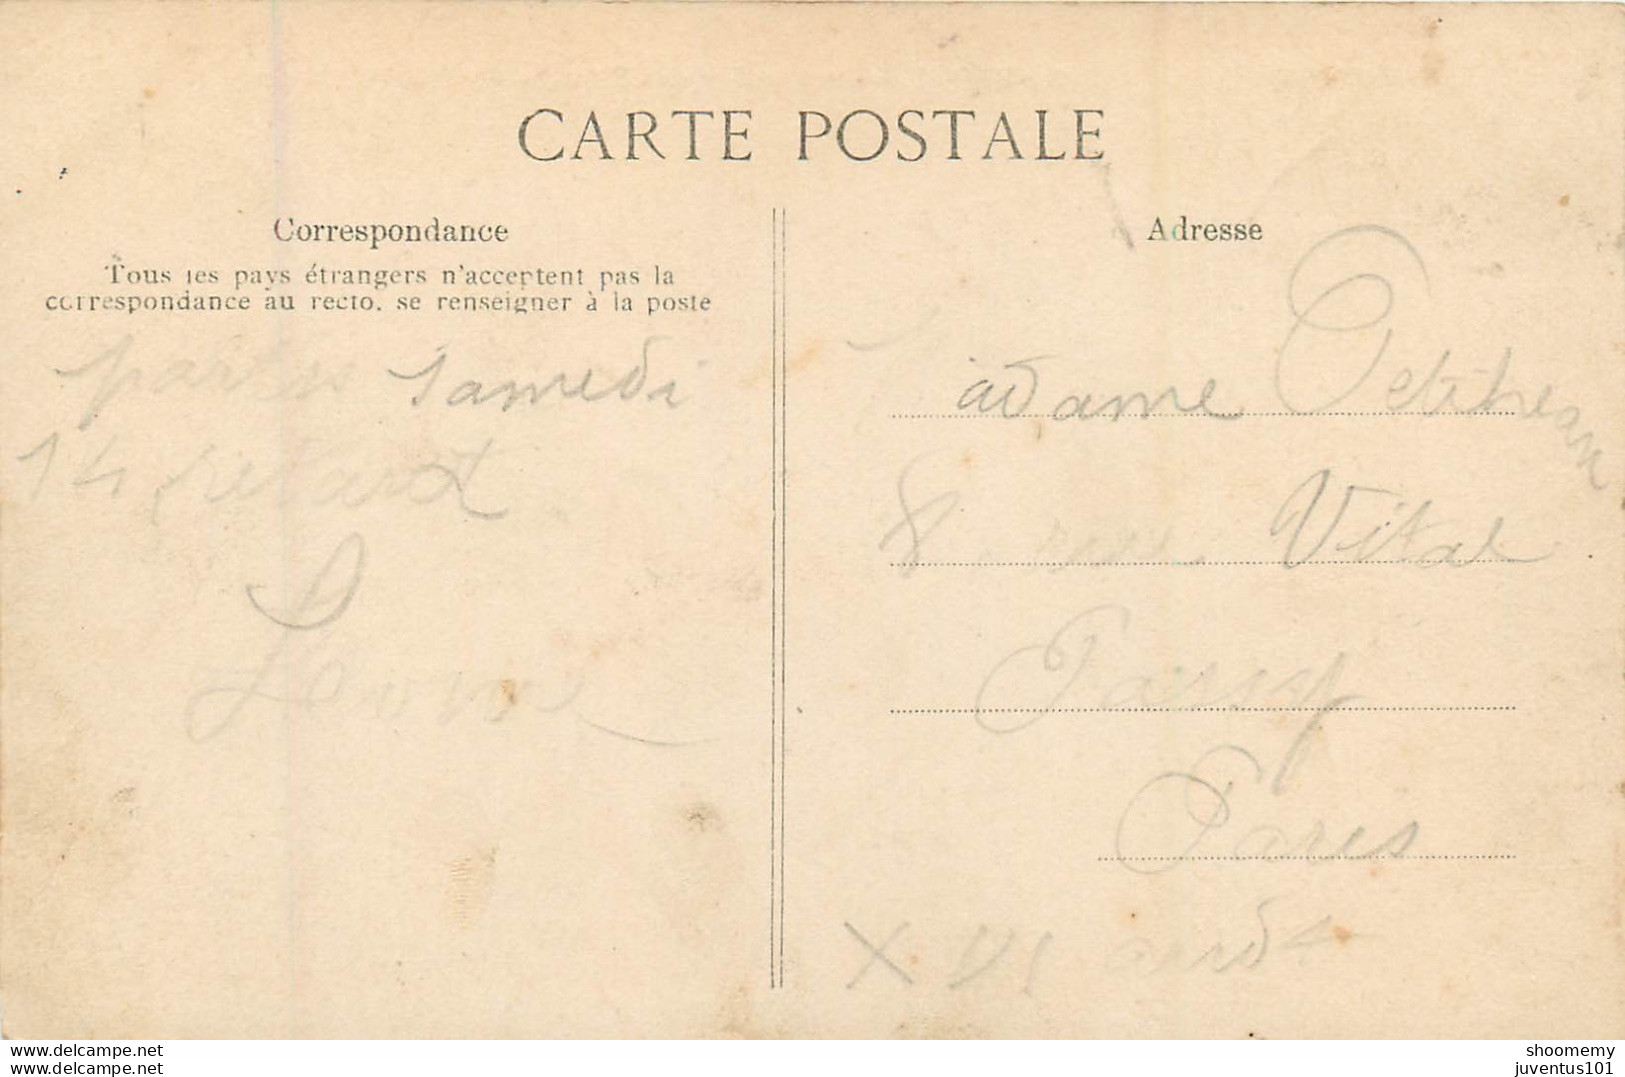 CARTE POSTALE
Correspondance
Tous les pays étrangers n'acceptent pas la
correspondance au recto, se renseigner à la poste
Samedi
14
Adresse
Madame Petitjean
8 rue Vital
Passy
Paris
XVI arrdt
www.delcampe.net
delcampe.net
shoomemy
juventus101